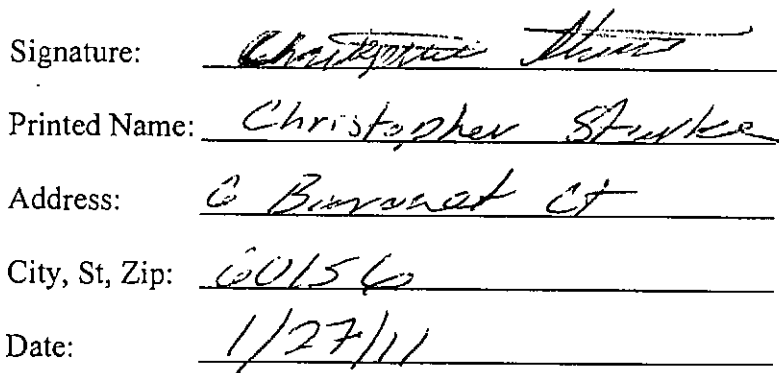 Signature: Christopher
Printed Name: Christopher Starke
Address: 6 Ct
City, St, Zip: 60156
Date: 1/27/11